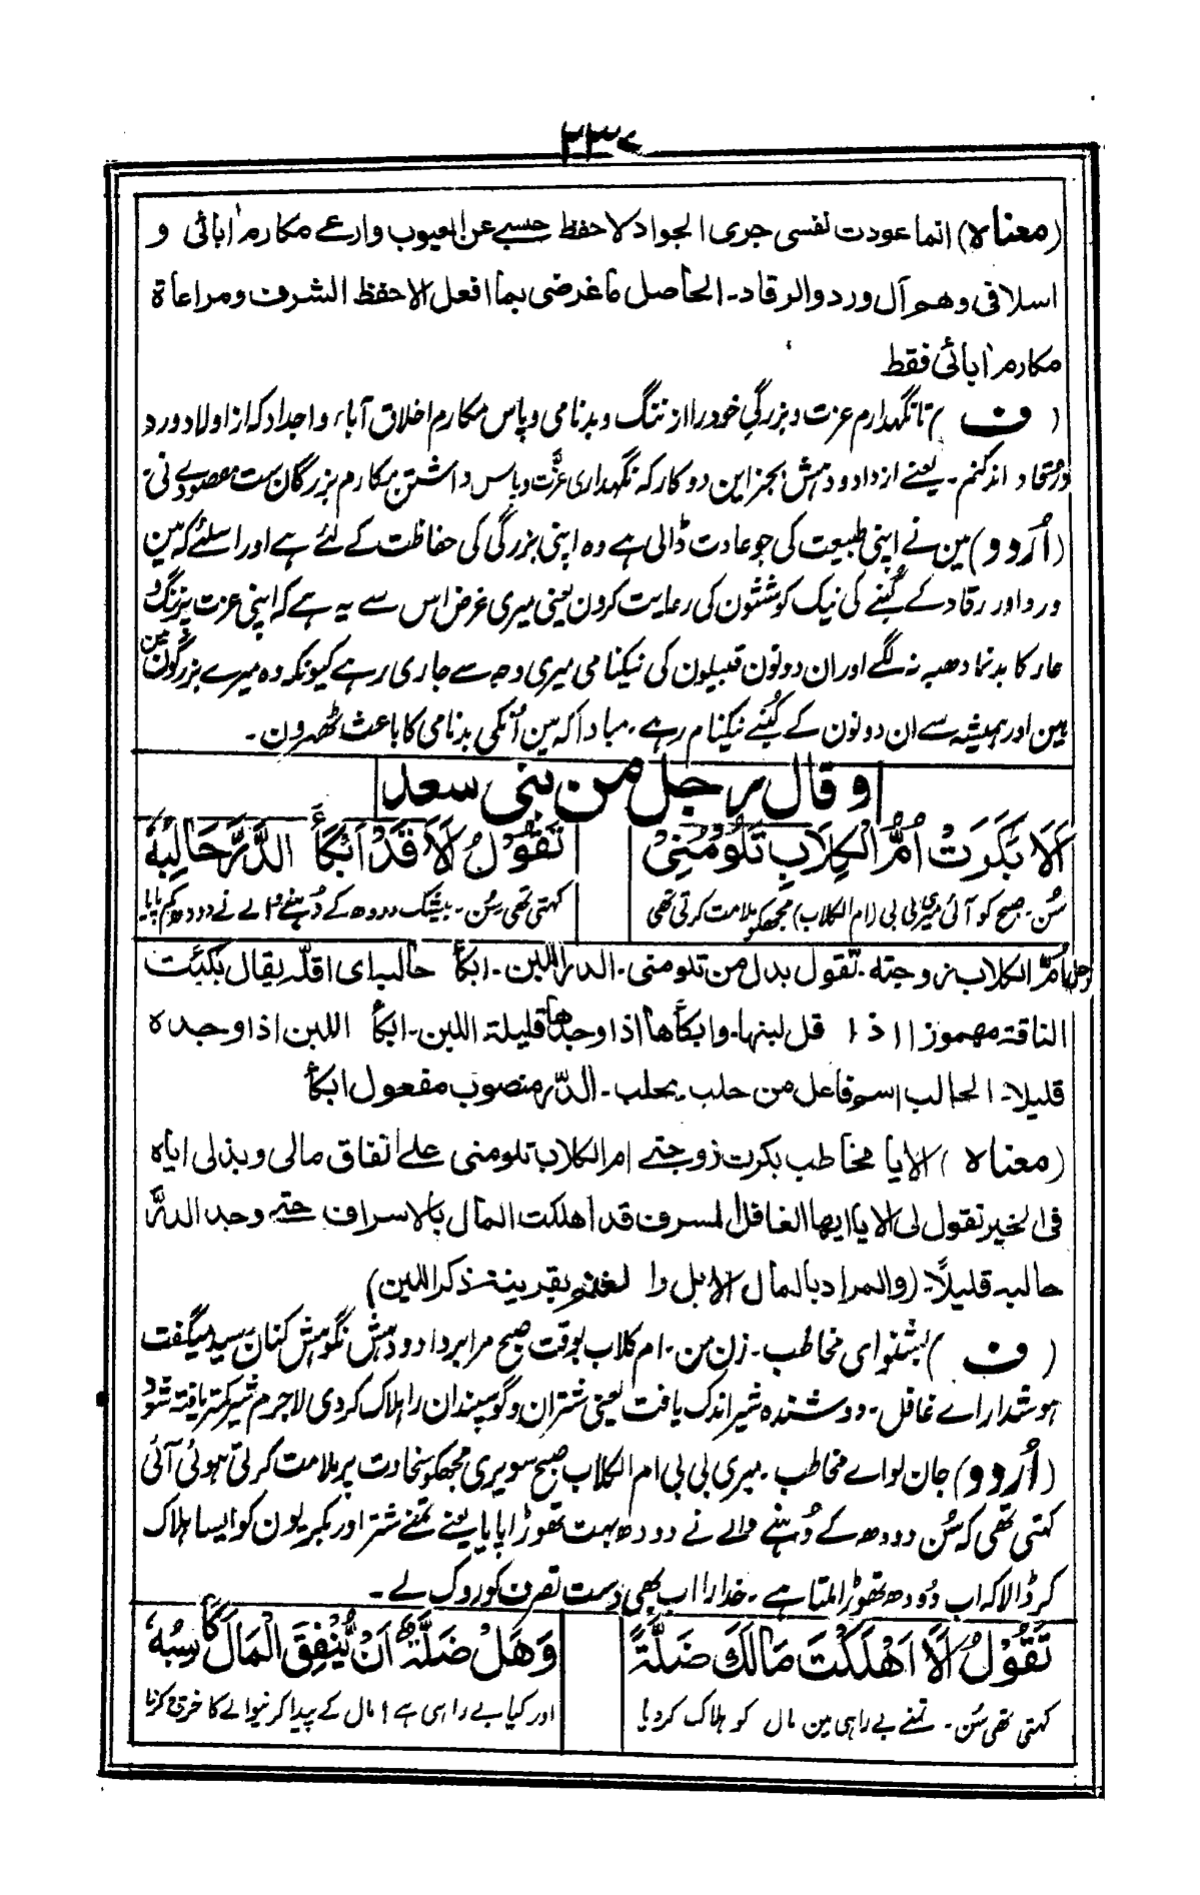 ٣٣٧
(معناه) انما عودت نفسی جری الجواد لاحفظ حسبے عن العیوب وارعے مکارم اٰبائی و
اسلافی وهم آل ورد والرقاد۔ الحاصل ما غرضی بما افعل الاحفظ الشرف ومراعاة
مکارم اٰبائی فقط
(ف) تا نگهدارم عزت و بزرگی خود را از ننگ و بدنامی و پاس مکارم اخلاق آباء و اجداد که از اولاد ورد
اند کنم۔ یعنے از داد و دہش بجز این دو کار که نگهداری عزت و پاس داشتن مکارم بزرگان ست مقصودے نی
(اُردو) مین نے اپنی طبیعت کی جو عادت ڈالی ہے وہ اپنی بزرگی کی حفاظت کے لئے ہے اور اسلئے کہ مین
ورد اور رقاد کے کُنبے کی نیک کوششون کی رعایت کرون یعنی میری غرض اس سے یہ ہے کہ اپنی عزت پر ننگ و
عار کا بدنما دھبہ نہ لگے اور ان دونون قبیلون کی نیکنامی میری وجہ سے جاری رہے کیونکہ وہ میرے بزرگون مین
ہین اور ہمیشہ سے ان دونون کے کُنبے نیکنام رہے۔ مبادا کہ مین اُنکی بدنامی کا باعث ٹھہرون۔
وقال رجل من بنی سعد
اَلَا بَکَرَتْ اُمُّ الْکِلَابِ تَلُوْمُنِیْ تَقُوْلُ اَلَا قَدْ اَبْکَأَ الدَّرَّ حَالِبُهْ
سُن۔ صبح کو آئی میری بی بی (ام الکلاب) مجھکو ملامت کرتی تھی کہتی تھی سُن۔ بیشک دودھ کے دُہنے والے نے دودھ کم پایا
اُمُّ الکلاب زوجته۔ تقول بدل من تلومنی۔ الدر اللبن۔ ابکأ حالبه ای اقلّه یقال بکئت
الناقة مهموزا اذا قل لبنها۔ وابکأها اذا وجدها قلیلة اللبن۔ ابکأ اللبن اذا وجده
قلیلا۔ الحالب اسم فاعل من حلب۔ یحلب۔ الدّر منصوب مفعول ابکأ
(معناه) الا یا مخاطب بکرت زوجتے ام الکلاب تلومنی علے انفاق مالی وبذلی ایاه
فی الخیر تقول لی الا یا ایها الغافل المسرف قد اهلکت المال بالاسراف حتے وجد الدرَّ
حالبه قلیلاً۔ (والمراد بالمال الابل والغنم بقرینة ذکر اللبن)
(ف) بشنو ای مخاطب۔ زن من۔ ام کلاب بوقت صبح مرا بر داد و دہش نکوہش کنان رسید میگفت
ہوشدار اے غافل۔ دوشنده شیر اندک یافت یعنی شتران و گوسپندان را ہلاک کردی لاجرم شیر کمتر یافته شود
(اُردو) جان لو اے مخاطب۔ میری بی بی ام الکلاب صبح سویری مجھکو سخاوت پر ملامت کرتی ہوئی آئی
کہتی تھی کہ سُن دودھ کے دُہنے والے نے دودھ بہت تھوڑا پایا یعنے تمنے شتر اور بکریون کو ایسا ہلاک
کر ڈالا کہ اب دودھ تھوڑا ملتا ہے۔ خدارا اب بھی دست تصرف کو روک لے۔
تَقُوْلُ اَلَا اَهْلَکْتَ مَالَکَ ضَلَّةً وَهَلْ ضَلَّةٌ اَنْ یُّنْفِقَ الْمَالَ کَاسِبُهْ
کہتی تھی سُن۔ تمنے بے راہی مین مال کو ہلاک کردیا اور کیا بے راہی ہے مال کے پیدا کرنیوالے کا خرچ کرنا